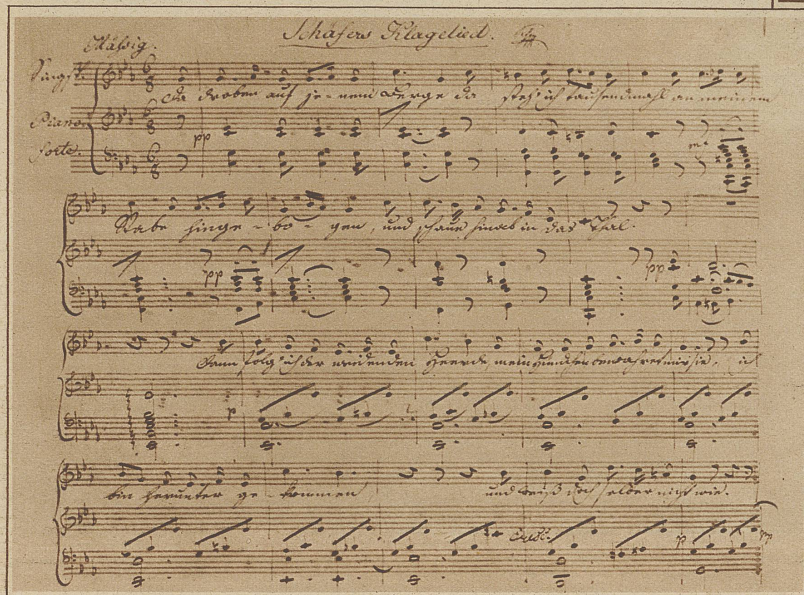 Schäfers Klagelied.
Mässig.
Singst.
Da droben auf je-nem Berge da steh' ich tausendmahl an meinem
Piano
forte.
pp
Stabe hinge-bo-gen, und schaue hinab in das Thal.
pp
pp
Dann folg' ich der weidenden Heerde, mein Hündchen bewahret mir sie, ich
p
bin herunter ge-kommen und weiß doch selber nicht wie.
p